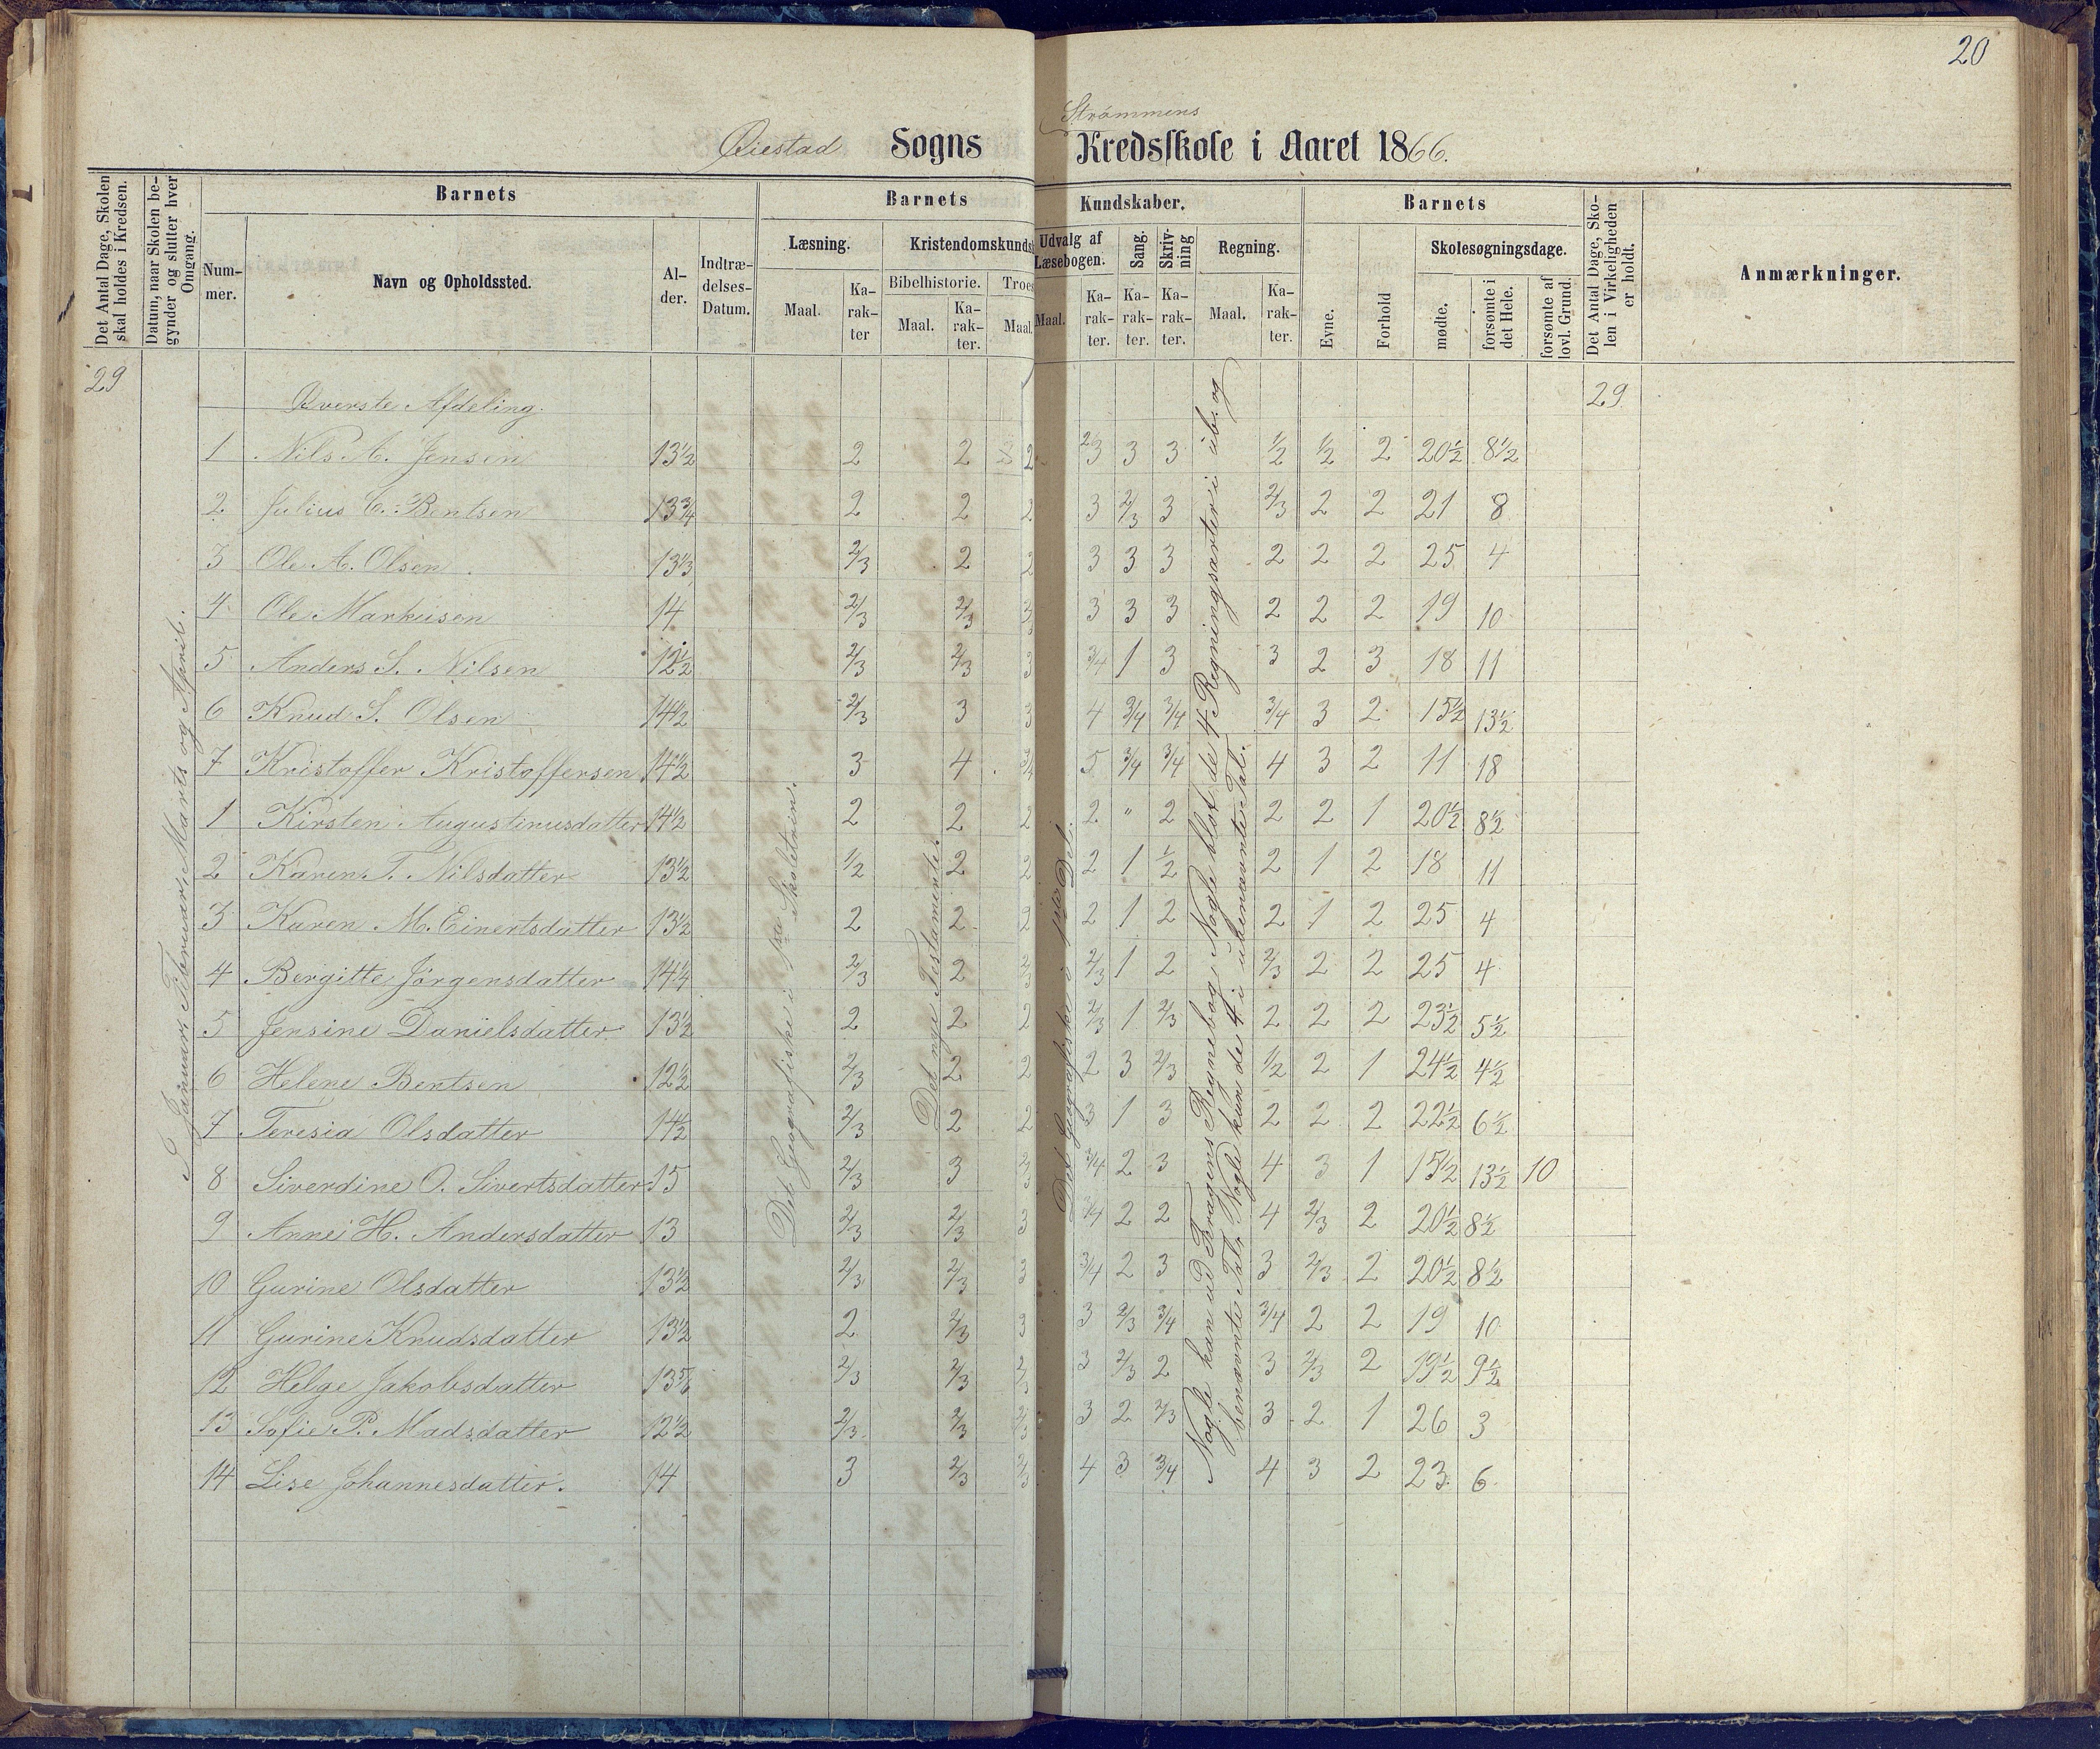 20
Øiestad Sogns Strömmens Kredsskole i Aaret 1866.
Det Antal Dage, Skolen skal holdes i Kredsen.
Datum, naar Skolen begynder og slutter hver Omgang.
Barnets
Num-mer.
Navn og Opholdssted.
Al-der.
Indtræ-delses-Datum.
Barnets Kundskaber.
Læsning.
Maal.
Ka-rak-ter
Kristendomskunds
Bibelhistorie.
Maal.
Ka-rak-ter.
Troes
Maal.
Udvalg af Læsebogen.
Maal.
Ka-rak-ter.
Sang.
Ka-rak-ter.
Skriv-ning
Ka-rak-ter.
Regning.
Maal.
Ka-rak-ter.
Barnets
Evne.
Forhold
Skolesøgningsdage.
mødte.
forsømte i det Hele.
forsømte af lovl. Grund.
Det Antal Dage, Sko-len i Virkeligheden er holdt.
Anmærkninger.
29 Øverste Afdeling. 29
1 Nils A. Jensen 13½ 2 2 2 2/3 3 3 ½ ½ 2 20½ 8½
2 Julius C. Bentsen 13¾ 2 2 2 3 2/3 3 2/3 2 2 21 8
3 Ole A. Olsen 13⅓ 2/3 2 2 3 3 3 2 2 2 25 4
4 Ole Markusen 14 2/3 2/3 3 3 3 3 2 2 2 19 10
5 Anders S. Nilsen 12½ 2/3 2/3 3 3/4 1 3 3 2 3 18 11
6 Knud S. Olsen 14½ 2/3 3 3 4 3/4 3/4 3/4 3 2 15½ 13½
7 Kristoffer Kristoffersen 14½ 3 4 3/4 5 3/4 3/4 4 3 2 11 18
1 Kirsten Augustinusdatter 14½ 2 2 2 2 " 2 2 2 1 20½ 8½
2 Karen T. Nilsdatter 13½ ½ 2 2 2 1 ½ 2 1 2 18 11
3 Karen M. Einertsdatter 13½ 2 2 2 2 1 2 2 1 2 25 4
4 Bergitte Jörgensdatter 14¼ 2/3 2 2/3 2/3 1 2 2/3 2 2 25 4
5 Jensine Danielsdatter 13½ 2 2 2 2/3 1 2/3 2 2 2 23½ 5½
6 Helene Bentsen 12½ 2/3 2 2 2 3 2/3 ½ 2 1 24½ 4½
7 Teresia Olsdatter 14½ 2/3 2 2 3 1 3 2 2 2 22½ 6½
8 Siverdine O. Sivertsdatter 15 2/3 3 2/3 3/4 2 3 4 3 1 15½ 13½ 10
9 Anne H. Andersdatter 13 2/3 2/3 3 3/4 2 2 4 2/3 2 20½ 8½
10 Gurine Olsdatter 13½ 2/3 2/3 3 3/4 2 3 3 2/3 2 20½ 8½
11 Gurine Knudsdatter 13½ 2 2/3 3 3 2/3 3/4 3/4 2 2 19 10
12 Helge Jakobsdatter 13 5/6 2/3 2/3 2/3 3 2/3 2 3 2/3 2 19½ 9½
13 Sofie P. Madsdatter 12½ 2/3 2/3 2/3 3 2 2/3 3 2 1 26 3
14 Lise Johannesdatter. 14 3 2/3 2/3 4 3 3/4 4 3 2 23 6
I Januar, Februar, Marts og April.
Det Geografiske i 1ste Skoletrin.
Det nye Testamente.
Det Geografiske i 1ste Del.
Nogle kan ud Kragens Regnebog, Nogle blot de 4 Regningsarter i ub. og
benævnte Tal, Nogle kun de 4 i ubenævnte Tal.